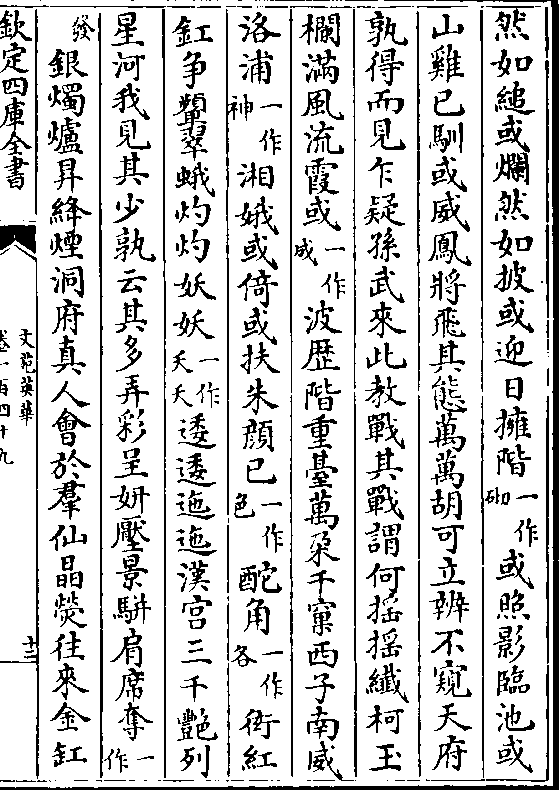 然如縋或爛然如披或迎日擁階一作砌或照影臨池或
山雞已馴或威鳳將飛其態萬萬胡可立辨不窺天府
孰得而見乍疑孫武來此教戰其戰謂何搖搖纖柯玉
欄滿風流霞或一作成波歷階重臺萬朶千窠西子南威
洛浦一作神湘娥或倚或扶朱顔已一作色酡角一作各衒紅
釭争顰翠蛾灼灼妖妖一作夭夭逶逶迤迤漢宫三千艷列
星河我見其少孰云其多弄彩呈妍壓景駢肩席奪一作
發銀燭爐昇絳煙洞府真人會於羣仙晶熒往來金釭
欽定四庫全書
文苑英華
卷一百四十九
十三